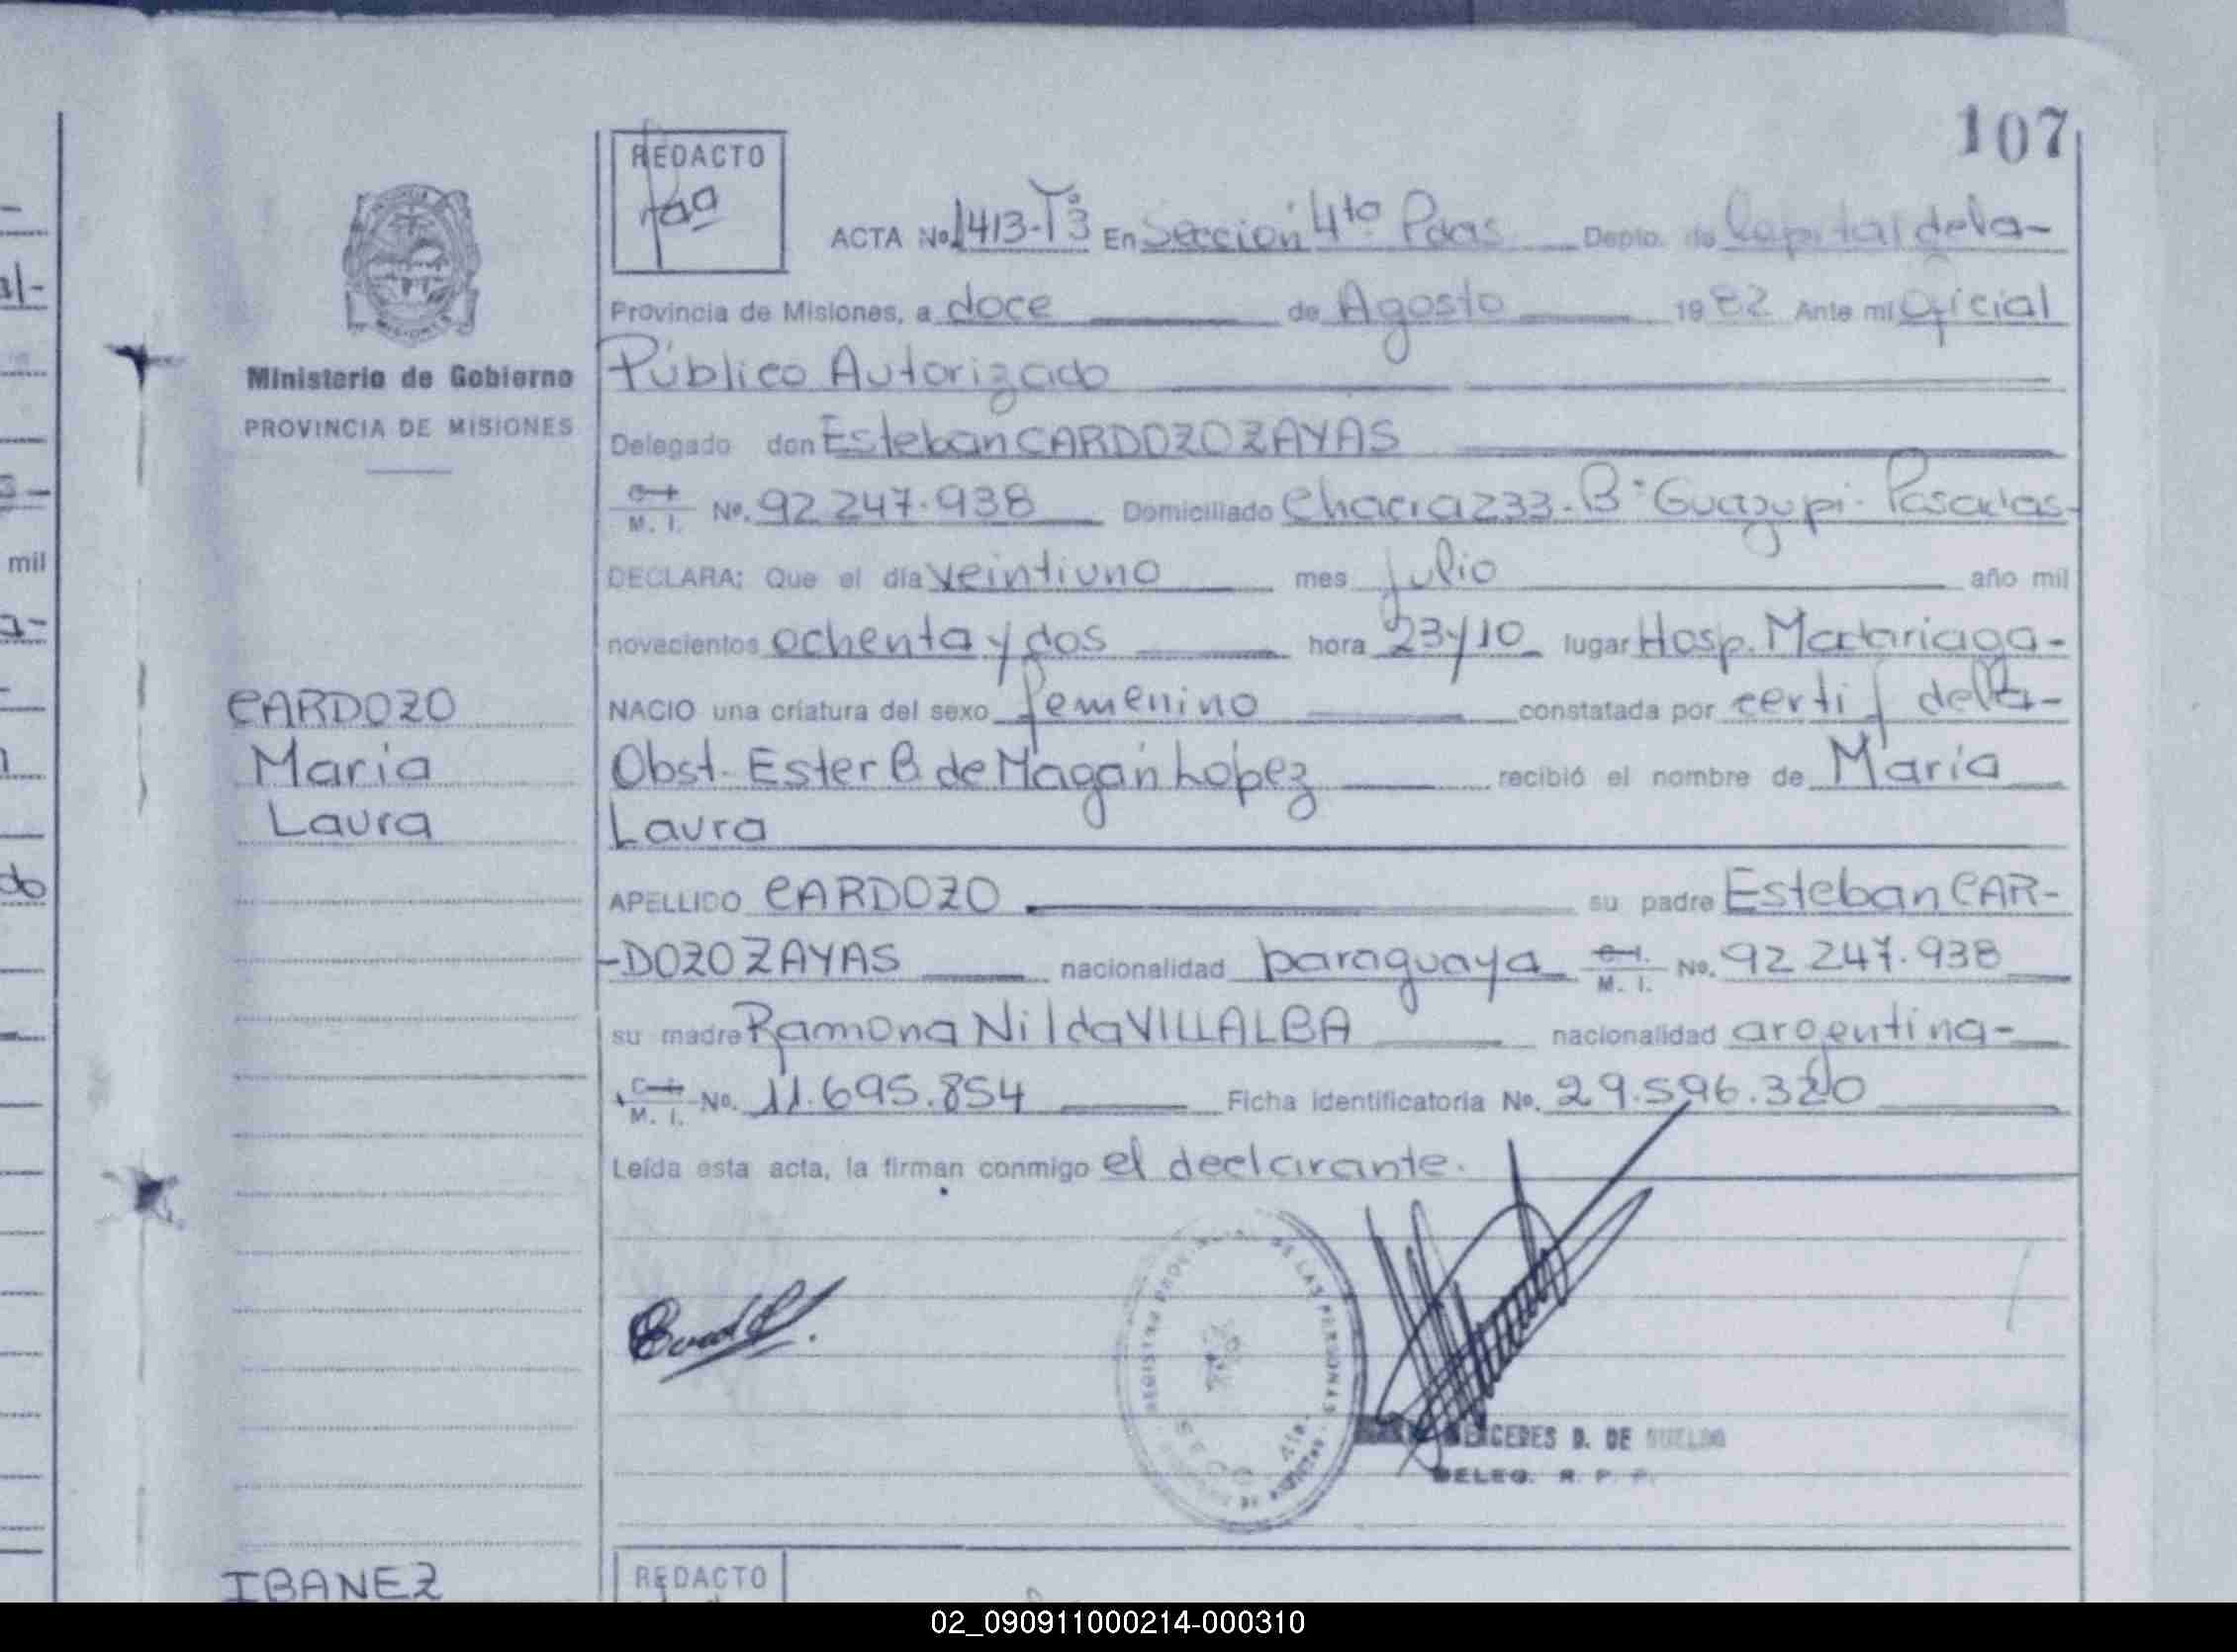 107
REDACTO
ACTA No. 1413-Tº3 En Sección 4ta Pdas Depto. de Capital de la-
Provincia de Misiones, a doce de Agosto 1982 Ante mi Oficial
Público Autorizado
Delegado don Esteban CARDOZO ZAYAS
M. I. No. 92 247.938 Domiciliado Chacra 233-Bº Guazupi-Posadas-
DECLARA: Que el día veintiuno mes julio año mil
novecientos ochenta y dos hora 23y10 lugar Hosp. Madariaga-
NACIO una criatura del sexo femenino constatada por certif de la-
Obst. Ester B. de Magán López recibió el nombre de María
Laura
APELLIDO CARDOZO su padre Esteban CAR-
-DOZO ZAYAS nacionalidad paraguaya C. I. M. I. No. 92 247.938
su madre Ramona Nilda VILLALBA nacionalidad argentina-
C. I. M. I. No. 11.695.854 Ficha identificatoria No. 29.596.320
Leída esta acta, la firman conmigo el declarante.
REGISTRO DE LAS PERSONAS
MERCEDES D. DE
DELEG. R. P. P.
REDACTO
Ministerio de Gobierno
PROVINCIA DE MISIONES
CARDOZO
María
Laura
IBANEZ
mil
02_090911000214-000310